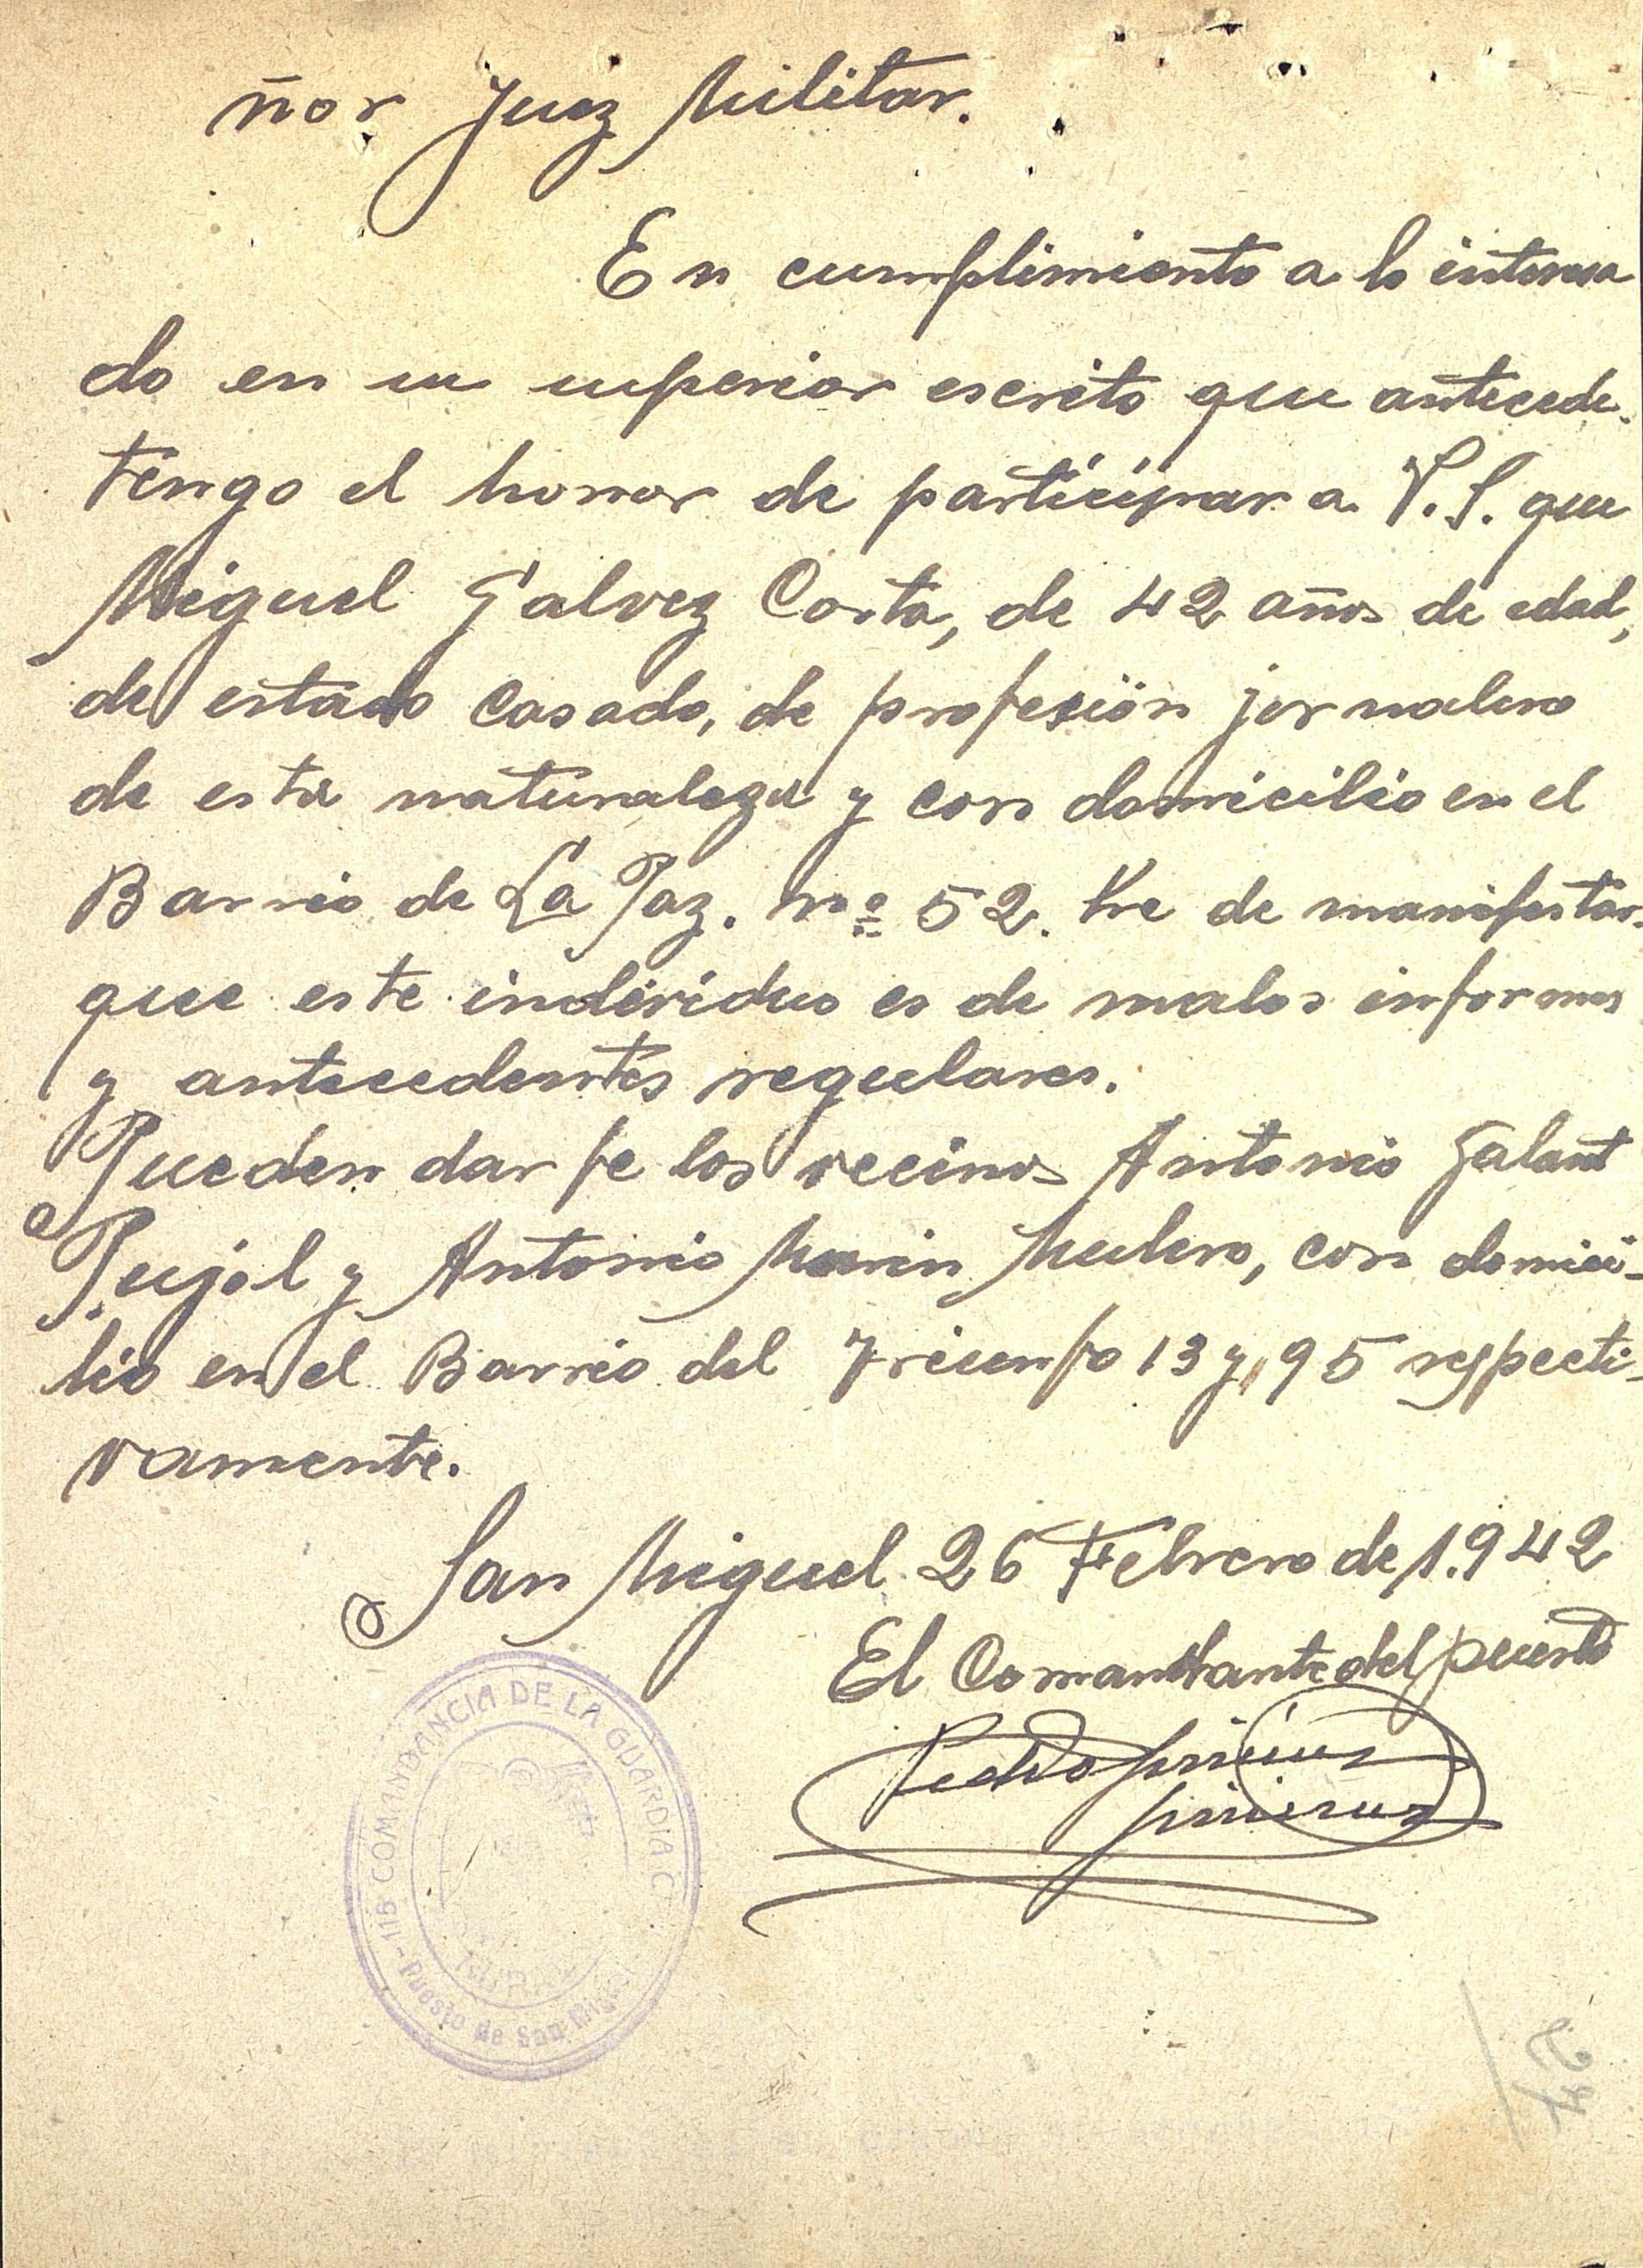 ñor Juez Militar.
En cumplimiento a lo interesa
do en su superior escrito que antecede.
tengo el honor de participar a V.S. que
Miguel Galvez Costa, de 42 años de edad,
de estado casado, de profesión jornalero
de esta naturaleza y con domicilio en el
Barrio de La Paz. nº 52. He de manifestar
que este individuo es de malos informes
y antecedentes regulares.
Pueden dar fe los vecinos Antonio Galant
Pujol y Antonio Marin Mulero, con domici-
lio en el Barrio del Triunfo 13 y 95 respecti-
vamente.
San Miguel 26 Febrero de 1.942
El Comandante del puesto
Pedro
116 COMANDANCIA DE LA GUARDIA C
-Puesto de San Miguel-